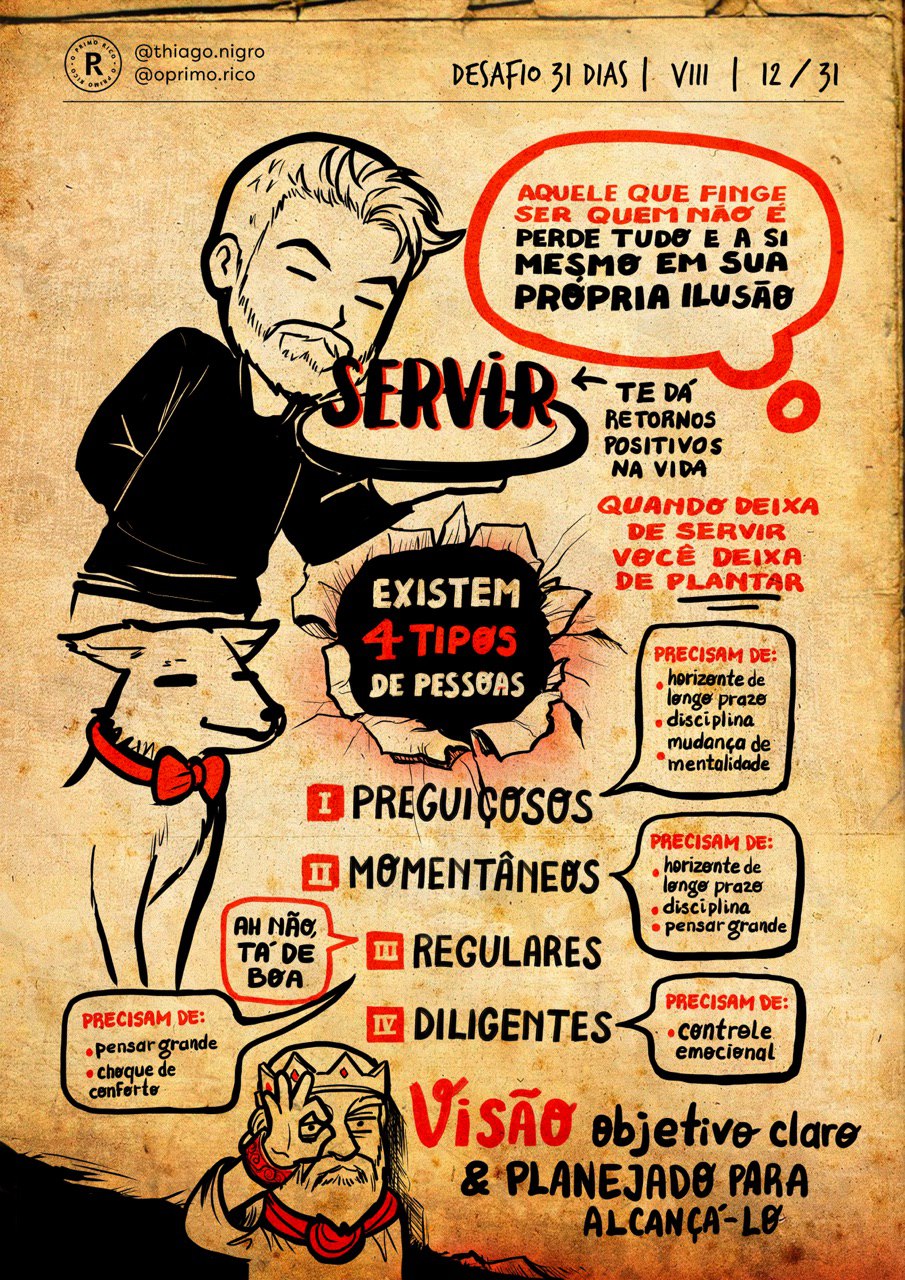 O PRIMO RICO · O PRIMO RICO ·
R
@thiago.nigro
@oprimo.rico
DESAFIO 31 DIAS | VIII | 12 / 31
AQUELE QUE FINGE
SER QUEM NÃO É
PERDE TUDO E A SI
MESMO EM SUA
PRÓPRIA ILUSÃO
SERVIR
TE DÁ
RETORNOS
POSITIVOS
NA VIDA
QUANDO DEIXA
DE SERVIR
VOCÊ DEIXA
DE PLANTAR
EXISTEM
4 TIPOS
DE PESSOAS
I PREGUIÇOSOS
PRECISAM DE:
• horizonte de
longo prazo
• disciplina
• mudança de
mentalidade
II MOMENTÂNEOS
PRECISAM DE:
• horizonte de
longo prazo
• disciplina
• pensar grande
AH NÃO,
TÁ DE
BOA
III REGULARES
PRECISAM DE:
• pensar grande
• choque de
conforto
IV DILIGENTES
PRECISAM DE:
• controle
emocional
VISÃO objetivo claro
& PLANEJADO PARA
ALCANÇÁ-LO